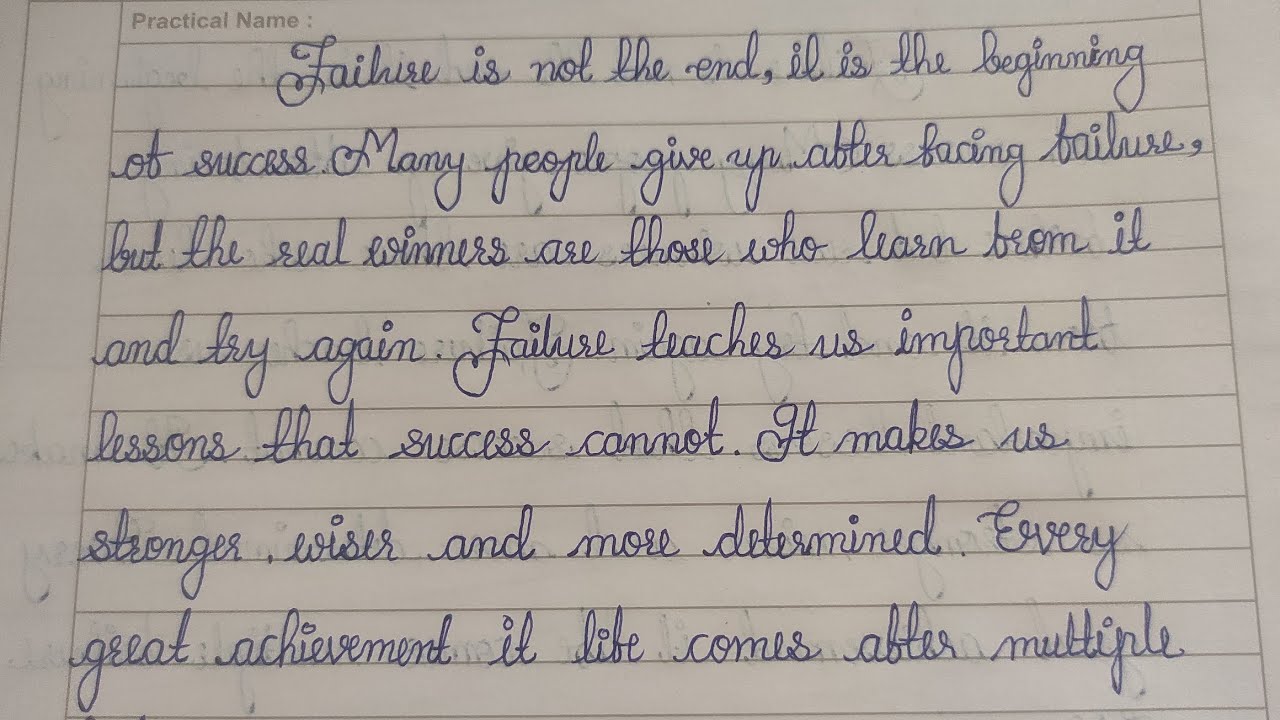 Practical Name :
Failure is not the end, it is the beginning
of success. Many people give up after facing failure,
but the real winners are those who learn from it
and try again. Failure teaches us important
lessons that success cannot. It makes us
stronger, wiser and more determined. Every
great achievement it life comes after multiple